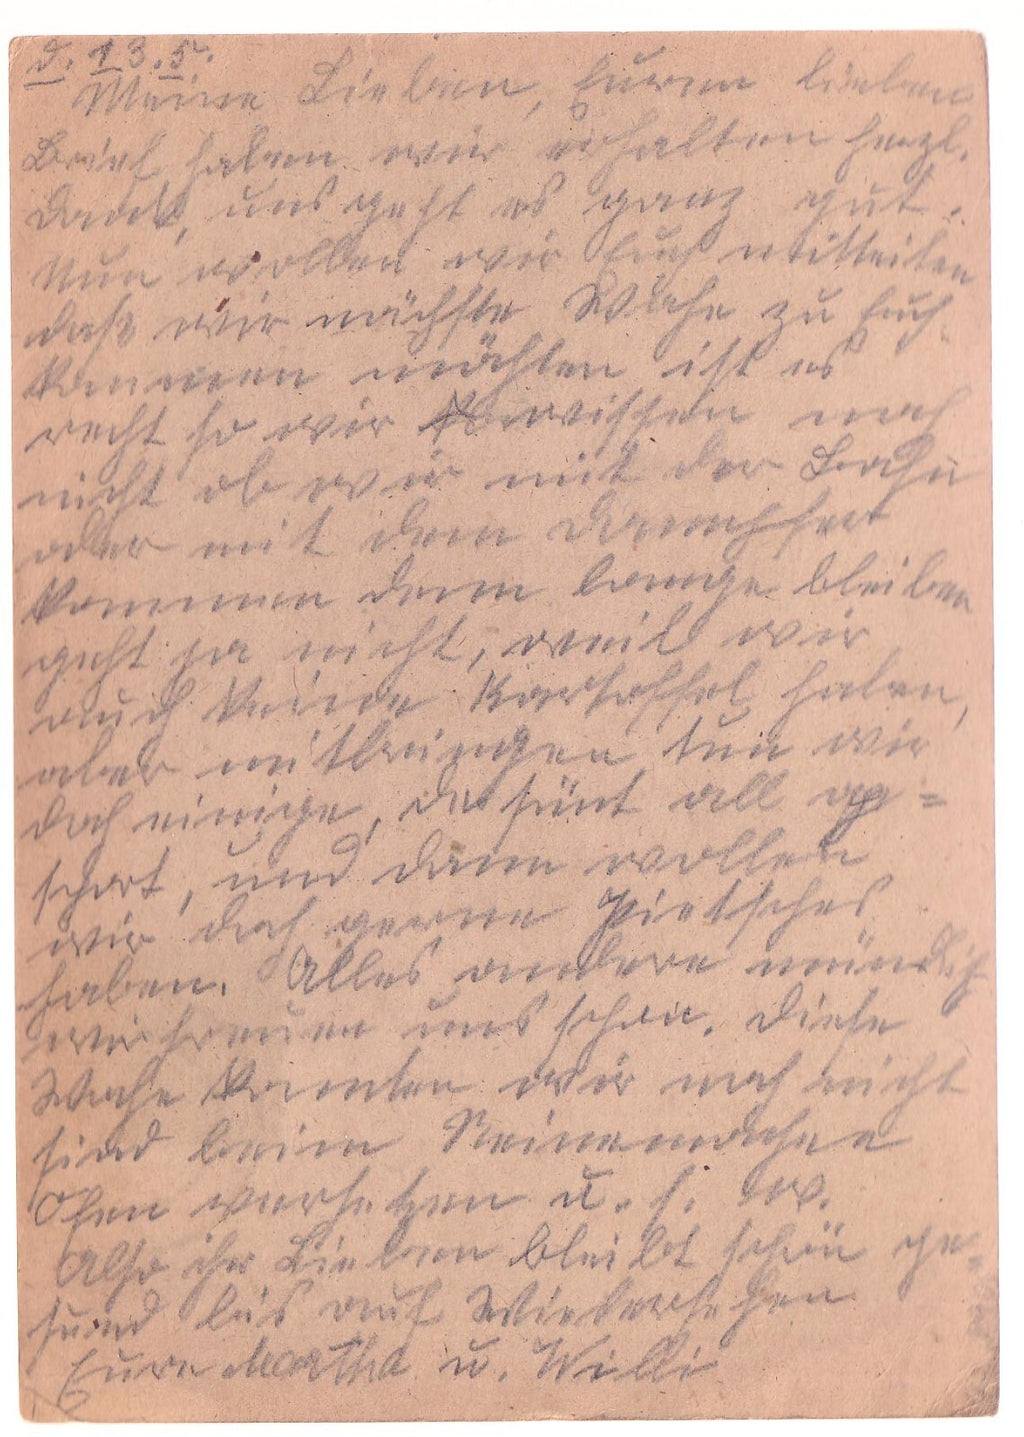 d. 13.5.
Meine Lieben, Euren lieben
Brief haben wir erhalten herzl.
Dank, uns geht es ganz gut.
Nun wollen wir Euch mitteilen
daß wir nächste Woche zu Euch
kommen möchten ist es
recht so wir wissen noch
nicht ob wir mit der Bahn
oder mit dem Dampfer
kommen denn lange bleiben
geht ja nicht, weil wir
auch keine Kartoffel haben,
aber mitbringen tun wir
doch einige, all
und dann wollen
wir doch gerne
haben. Alles andere mündlich
wir freuen uns schon. Diese
Woche konnten wir noch nicht
sind beim Reinemachen
Ofen versetzen u. s. w.
Also ihr Lieben bleibt schön ge=
sund bis auf Wiedersehen
Eure Martha u. Willi